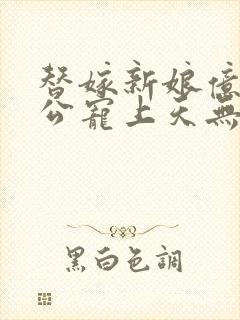 替嫁新娘億
公寵上天無
黑白色調